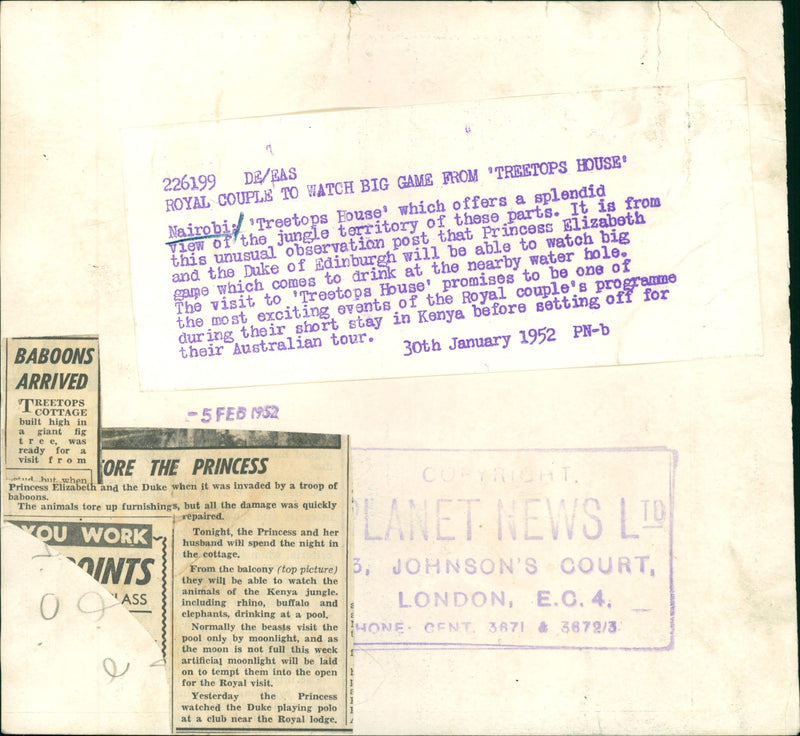 226199 DE/EAS
ROYAL COUPLE TO WATCH BIG GAME FROM 'TREETOPS HOUSE'
Nairobi: 'Treetops House' which offers a splendid
view of the jungle territory of these parts. It is from
this unusual observation post that Princess Elizabeth
and the Duke of Edinburgh will be able to watch big
game which comes to drink at the nearby water hole.
The visit to 'Treetops House' promises to be one of
the most exciting events of the Royal couple's programme
during their short stay in Kenya before setting off for
their Australian tour.
30th January 1952 PN-b
-5 FEB 1952
BABOONS
ARRIVED
TREETOPS
COTTAGE
built high in
a giant fig
tree, was
ready for a
visit from
but when
ORE THE PRINCESS
Princess Elizabeth and the Duke when it was invaded by a troop of
baboons.
The animals tore up furnishings, but all the damage was quickly
repaired.
Tonight, the Princess and her
husband will spend the night in
the cottage.
From the balcony (top picture)
they will be able to watch the
animals of the Kenya jungle,
including rhino, buffalo and
elephants, drinking at a pool.
Normally the beasts visit the
pool only by moonlight, and as
the moon is not full this week
artificial moonlight will be laid
on to tempt them into the open
for the Royal visit.
Yesterday the Princess
watched the Duke playing polo
at a club near the Royal lodge.
YOU WORK
OINTS
LASS
COPYRIGHT.
PLANET NEWS LTD
3, JOHNSON'S COURT,
LONDON, E.C.4,
HONE: CENT. 3671 & 3672/3